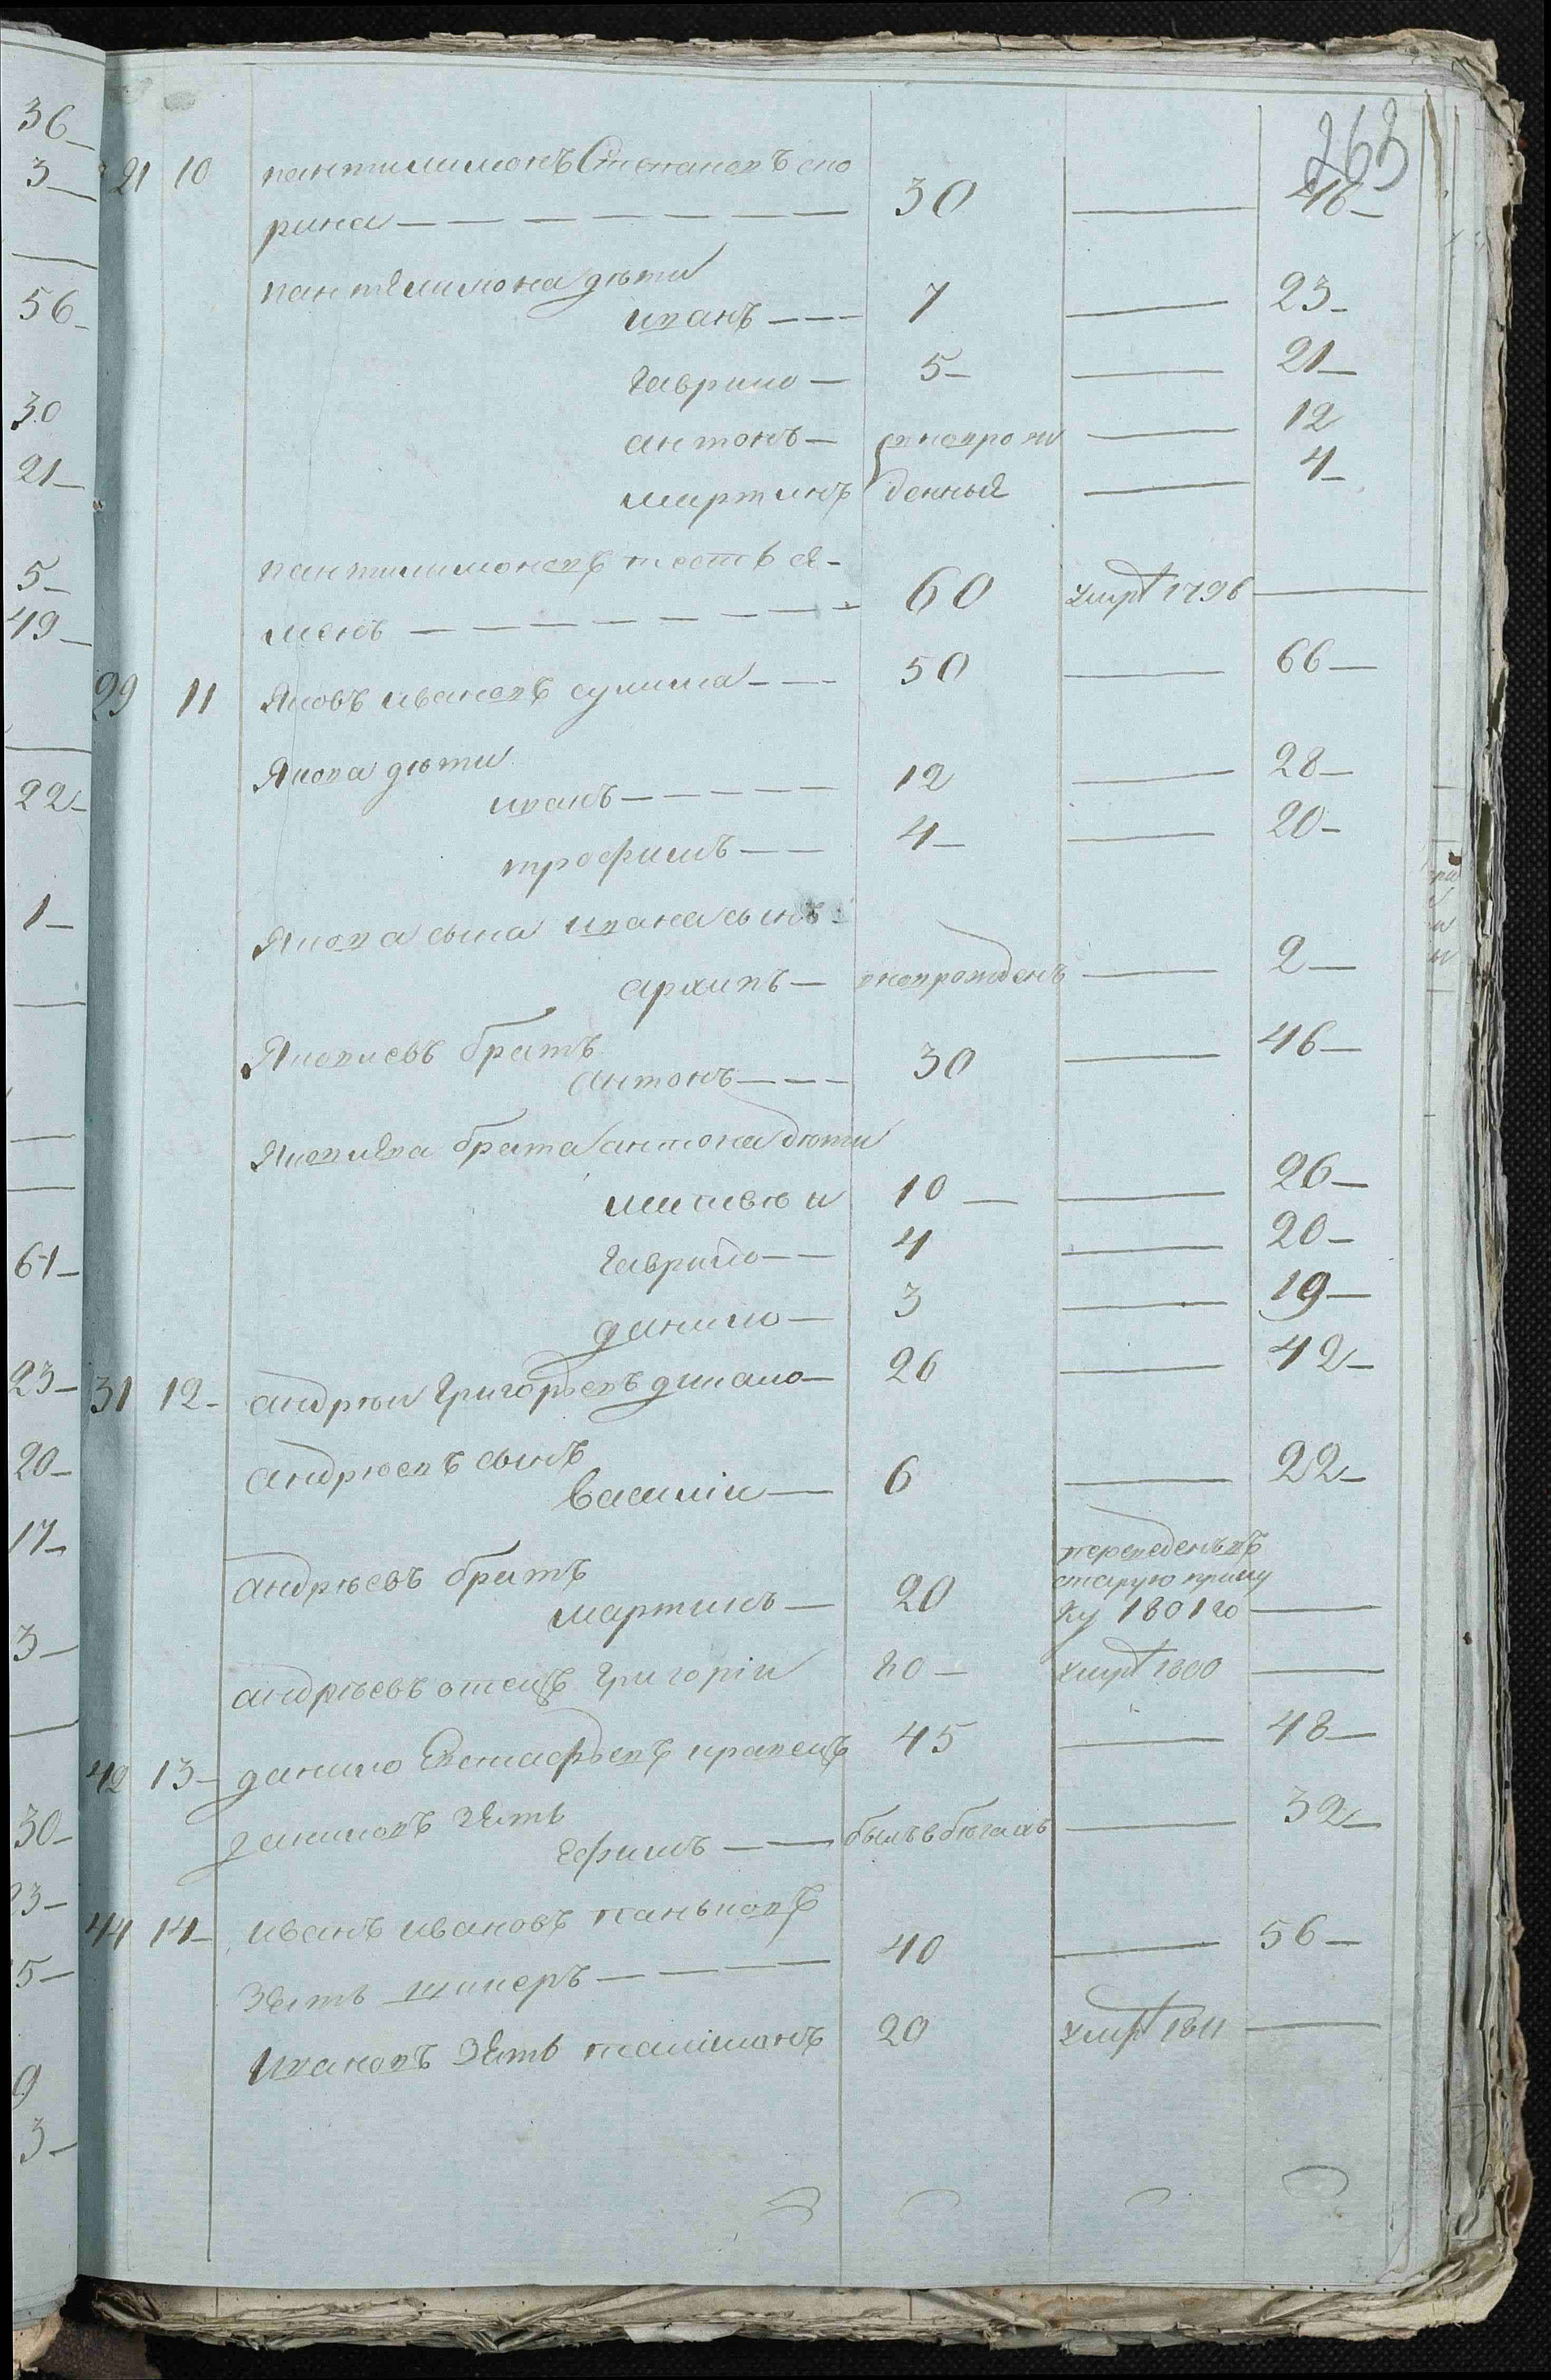 263
21 10 пантилимонъ Степановъ ско
рина 30 46
пантелимона дѣти
иванъ 7 23
гаврило 5 21
антонъ вновърож 12
мартинъ денные 4
пантилимоновъ тесть се-
менъ 60 умръ 1796
29 11 Яковъ ивановъ сулима 50 66
Якова дѣти
иванъ 12 28
трофимъ 4 20
Якова сына ивана сынъ
архипъ вноврожденъ 2
Яковлевъ братъ
антонъ 30 46
Яковлева брата антона дѣти
матвѣи 10 26
гаврило 4 20
данило 3 19
31 12 андрѣи григорьевъ дикало 26 42
андрѣевъ сынъ
василіи 6 22
андрѣевъ братъ
мартинъ 20
переведенъ въ
старую прилу
ку 1801го
андрѣевъ отецъ григоріи 80 умръ 1800
42 13 данило Евстафьевъ кравецъ 45 48
даниловъ зять
ефимъ былъ в бѣгахъ 32
44 14 иванъ ивановъ паньковъ
зять 40 56
ивановъ зять 20 умръ 1811
36
3
56
30
21
5
49
22
1
61
23
20
17
3
30
23
5
9
3